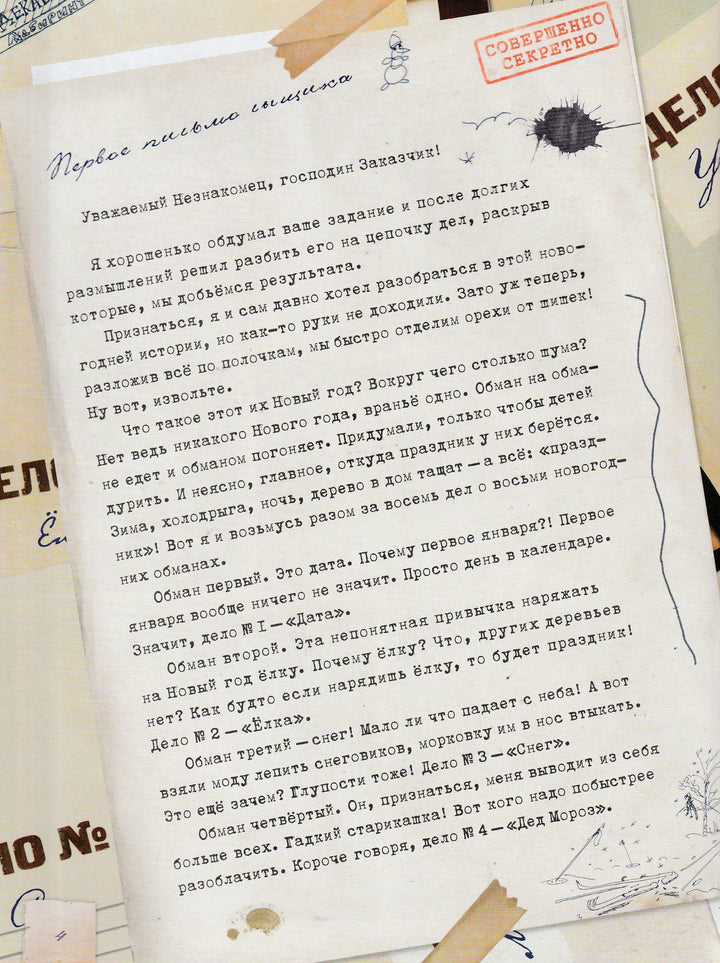 ДЕКАБ
ЛАБИРИНТ
СОВЕРШЕННО
СЕКРЕТНО
Первое письмо сыщика
Уважаемый Незнакомец, господин Заказчик!
Я хорошенько обдумал ваше задание и после долгих
размышлений решил разбить его на цепочку дел, раскрыв
которые, мы добьёмся результата.
Признаться, я и сам давно хотел разобраться в этой ново-
годней истории, но как-то руки не доходили. Зато уж теперь,
разложив всё по полочкам, мы быстро отделим орехи от шишек!
Ну вот, извольте.
Что такое этот их Новый год? Вокруг чего столько шума?
Нет ведь никакого Нового года, враньё одно. Обман на обма-
не едет и обманом погоняет. Придумали, только чтобы детей
дурить. И неясно, главное, откуда праздник у них берётся.
Зима, холодрыга, ночь, дерево в дом тащат — а всё: «празд-
ник»! Вот я и возьмусь разом за восемь дел о восьми новогод-
них обманах.
Обман первый. Это дата. Почему первое января?! Первое
января вообще ничего не значит. Просто день в календаре.
Значит, дело № I — «Дата».
Обман второй. Эта непонятная привычка наряжать
на Новый год ёлку. Почему ёлку? Что, других деревьев
нет? Как будто если нарядишь ёлку, то будет праздник!
Дело № 2 — «Ёлка».
Обман третий — снег! Мало ли что падает с неба! А вот
взяли моду лепить снеговиков, морковку им в нос втыкать.
Это ещё зачем? Глупости тоже! Дело № 3 — «Снег».
Обман четвёртый. Он, признаться, меня выводит из себя
больше всех. Гадкий старикашка! Вот кого надо побыстрее
разоблачить. Короче говоря, дело № 4 — «Дед Мороз».
ДЕЛО
У
ЕЛО
Ёл
ЛО №
4